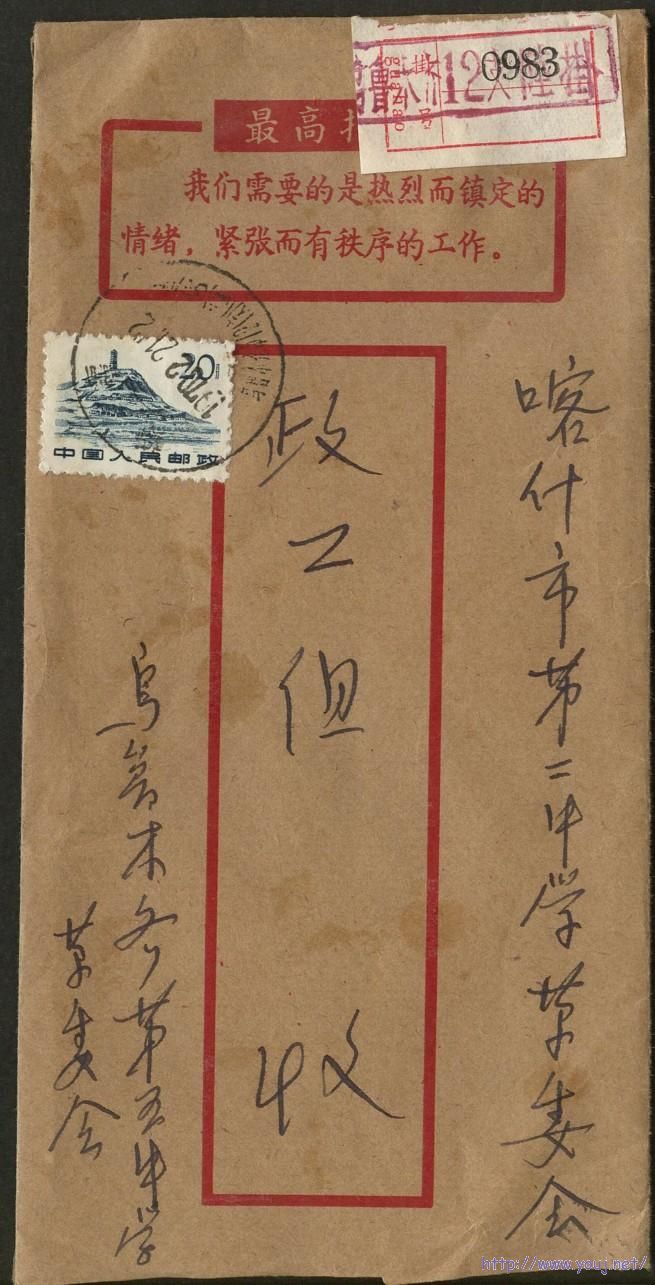 0983
12
掛
号
guahao
最高
我们需要的是热烈而镇定的
情绪，紧张而有秩序的工作。
20
中国人民邮政
喀什市第二中学革委会
政工组
收
乌鲁木齐第五中学
革委会
http://www.youj.net/